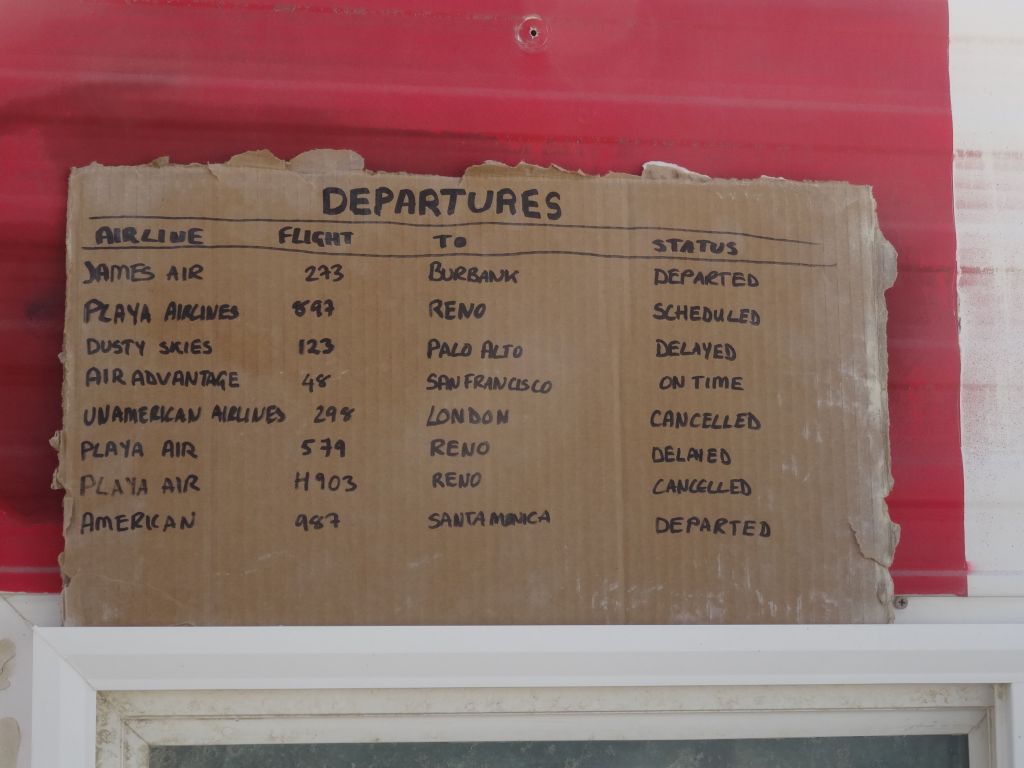 DEPARTURES
AIRLINE FLIGHT TO STATUS
JAMES AIR 273 BURBANK DEPARTED
PLAYA AIRLINES 897 RENO SCHEDULED
DUSTY SKIES 123 PALO ALTO DELAYED
AIR ADVANTAGE 48 SAN FRANCISCO ON TIME
UNAMERICAN AIRLINES 298 LONDON CANCELLED
PLAYA AIR 579 RENO DELAYED
PLAYA AIR H903 RENO CANCELLED
AMERICAN 987 SANTA MONICA DEPARTED